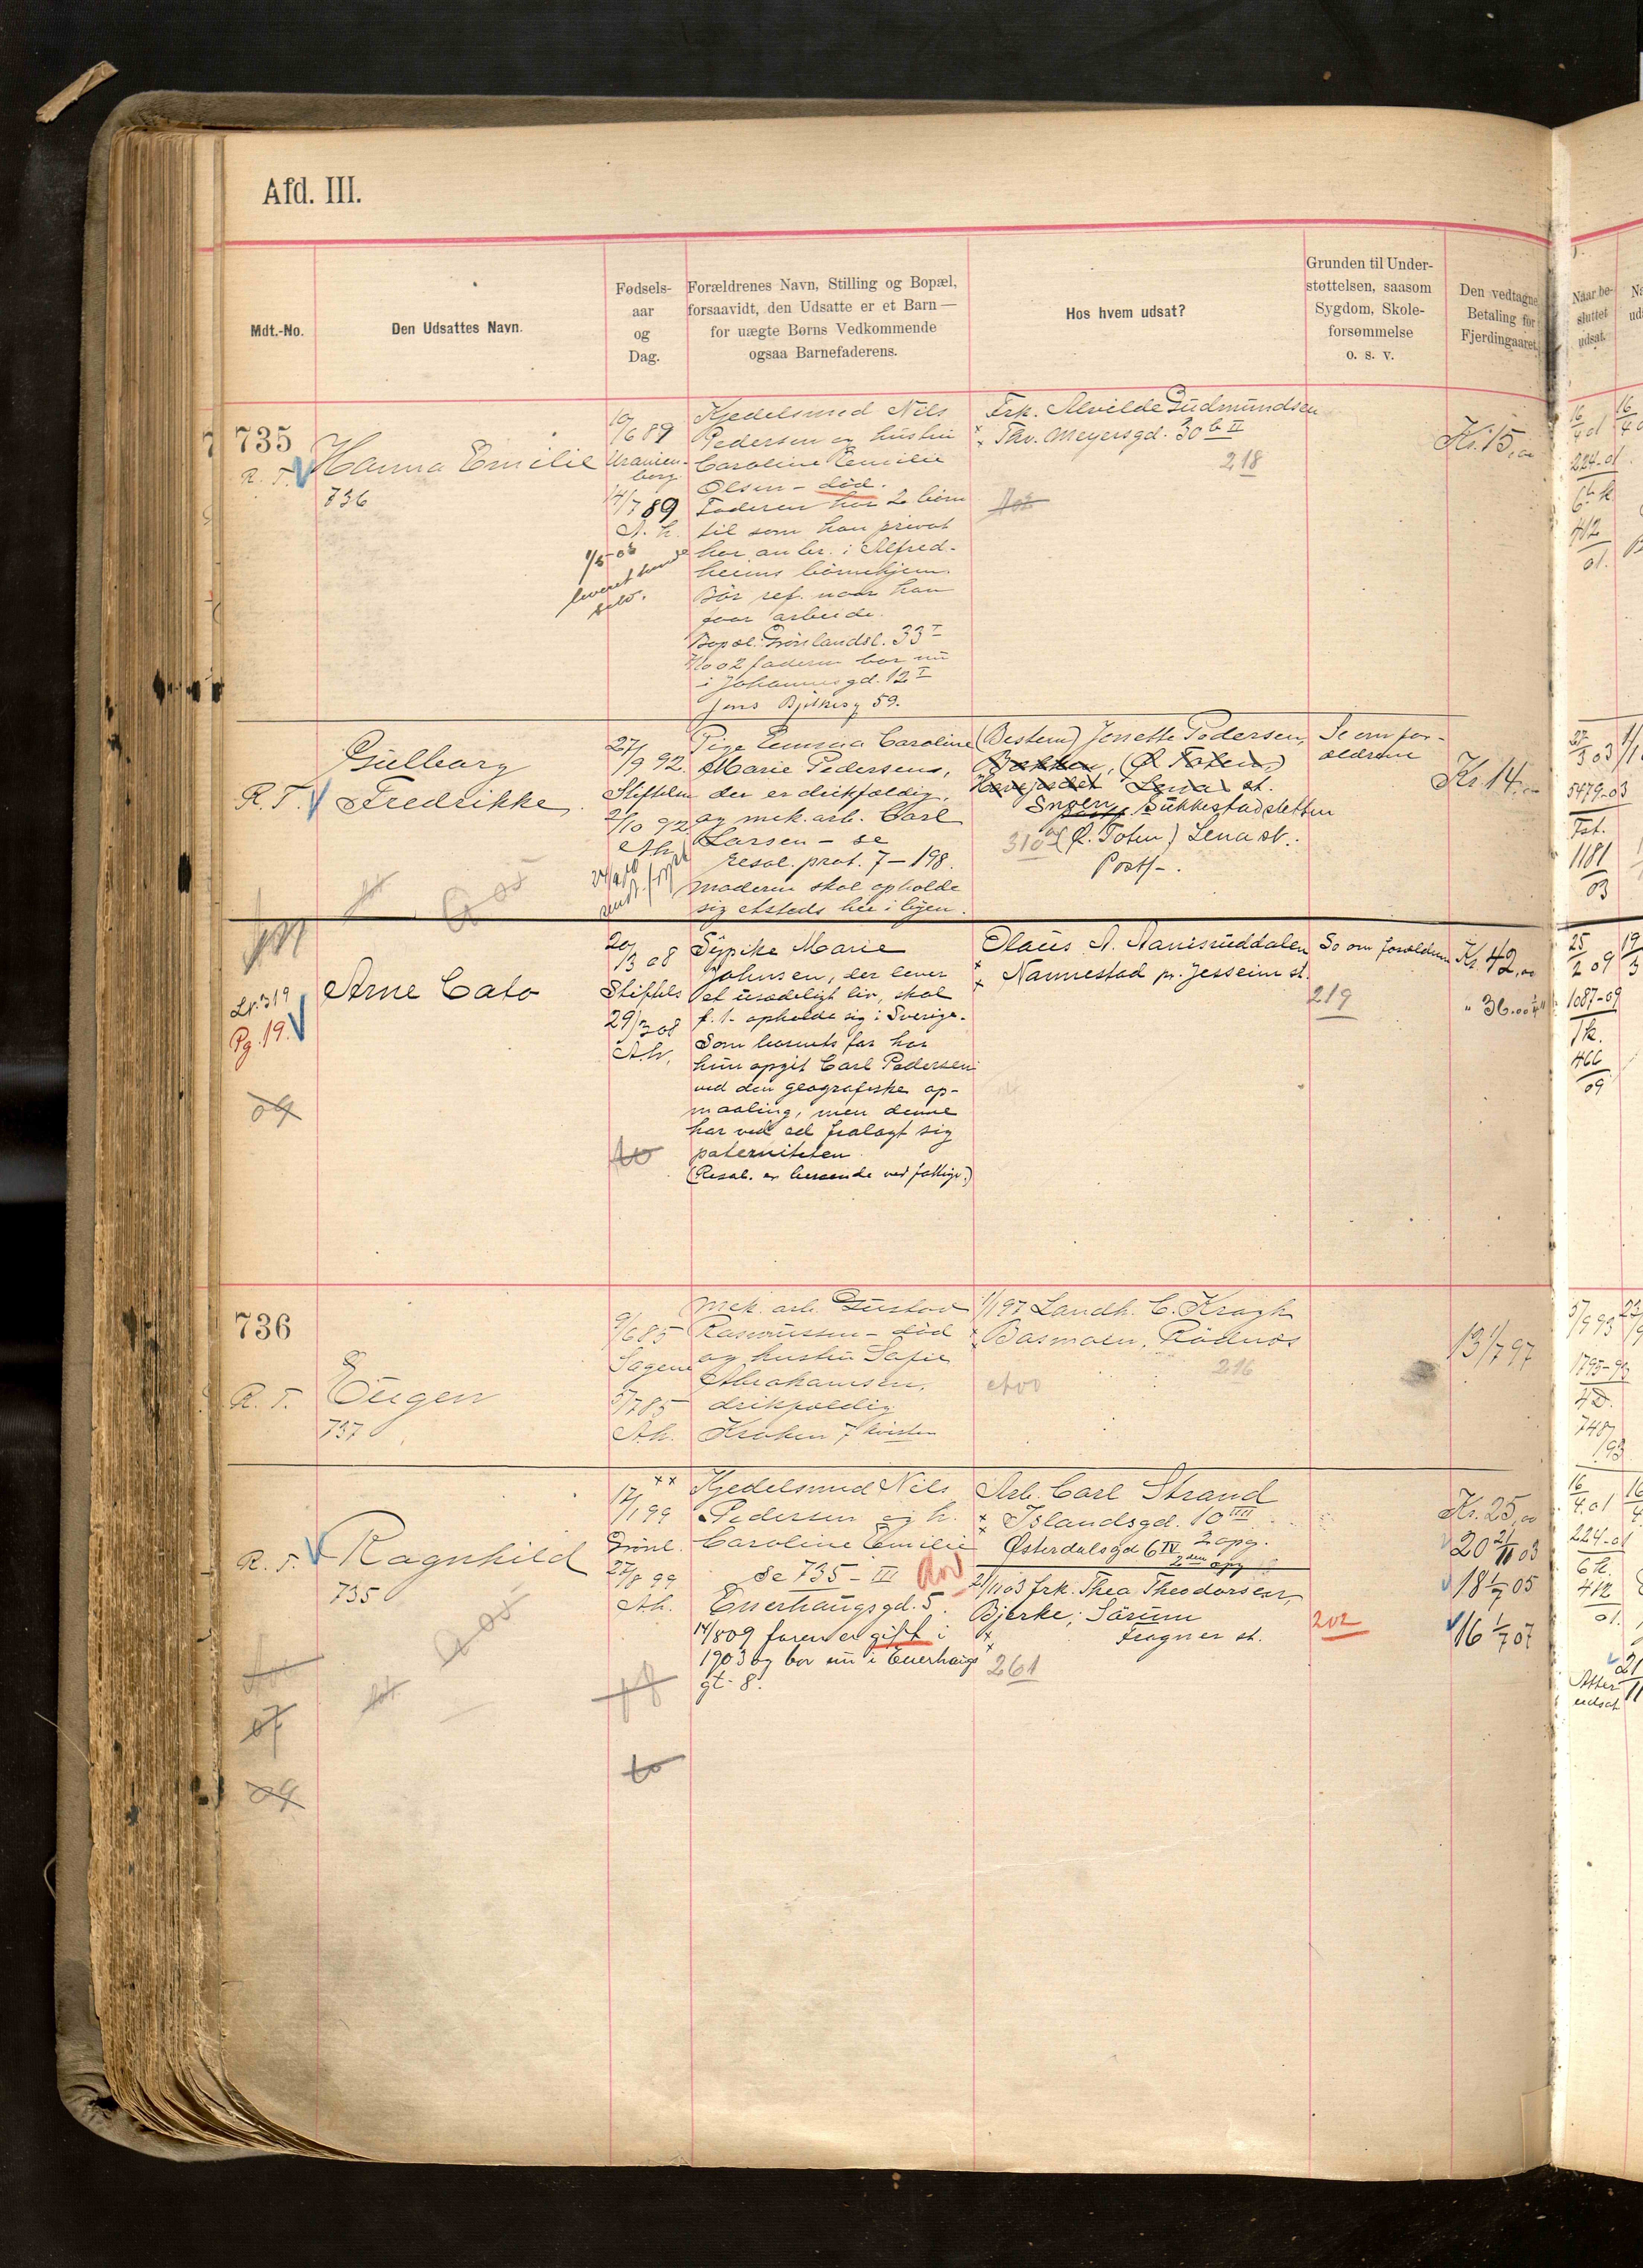 Afd. III.
Mdt.-No.
Den Udsattes Navn.
Fødsels-
aar
og
Dag.
Forældrenes Navn, Stilling og Bopæl,
forsaavidt, den Udsatte er et Barn —
for uægte Børns Vedkommende
ogsaa Barnefaderens.
Hos hvem udsat?
Grunden til Under-
støttelsen, saasom
Sygdom, Skole-
forsømmelse
o. s. v.
Den vedtagne
Betaling for
Fjerdingaaret.
Naar be-
sluttet
udsat.
735
R. T.
Hanna Emilie
736
10/6 89
Uranien-
borg
14/7 89
A. h.
1/5 06
leveret
Kjedelsmed Nils
Pedersen og hustru
Caroline Emilie
Olsen – død.
Faderen har 2 börn
til som han privat
har anbr. i Alfred-
heims börnehjem.
Bör ref. naar han
faar arbeide.
Bopæl: Grönlandsl. 33 I
faderen bor nu
i Johannesgd. 12 I
Jens Bjelkesg 59.
Frk. Alvilde Gudmundsen
Thv. Meyersgd. 30 b II
218
Kr. 15,00
16/4 01
224-01
6 k
412
01.
Gulborg
Fredrikke
R. T.
27/9 92.
Stiftelsen
2/10 92
Ah.
Pige Emma Caroline
Marie Pedersens,
der er drikfældig,
og mek. arb. Carl
Larsen – se
resol. prot. 7 – 198.
Moderen skal opholde
sig etsteds her i byen.
(Bestem) Jenette Pedersen,
Bakken, (Ø. Toten)
Lena st.
Sukkestadsletten
310 (Ø. Toten) Lena st.
Post.
Se om for-
ældrene
Kr. 14,-
27/3 03
5479-03
Tst.
1181
03
Lr. 319
Pg. 19.
Arne Cato
09
20/3 08
Stiftels
29/3 08
A.h.
Sypike Marie
Johnsen, der lever
et usædeligt liv, skal
f. t. opholde sig i Sverige.
Som barnets far har
hun opgit Carl Pedersen
ved den geografiske op-
maaling, men denne
har ved ed fralagt sig
paterniteten
(Resol. er beroende ved fattigv.)
Olaus A. Nannestad pr. Jessheim st.
219
Se om forældrene
Kr. 42,00
" 36.00
25/2 09
1087-09
Tk.
466
09
736
R. T.
Eugen
737
9/6 85
Sagene
5/7 85
A.h.
Mek. arb. Gustav
Rasmussen – död
og hustru Sofie
Abrahamsen.
drikfældig
Kroken 7 kvisten
1/1 97 Landh. C. Kragh
Basmoen, Rödnes
216
13 1/7 97
5/9 93
1795-93
4 D.
748
193
R. T.
Ragnhild
735
17/1 99
Grönl.
27/8 99
A.h.
Kjedelsmed Nils
Pedersen og h.
Caroline Emilie
Se 735 – III
Enerhaugsgd. 5.
14/8 09 faren er gift i
1903 og bor nu i Enerhaugs
gt. 8.
Arb. Carl Strand
Islandsgd. 10 III
Østerdalsgd 6 IV 2 opg.
21/11 03 frk. Thea Theodorsen,
Bjerke, Sörum
Frogner st.
261
202
Kr. 25,00
20 21/11 03
18 1/7 05
16 1/7 07
16/4 01
224-01
6 k.
412
01.
Atter
udsat
07
09